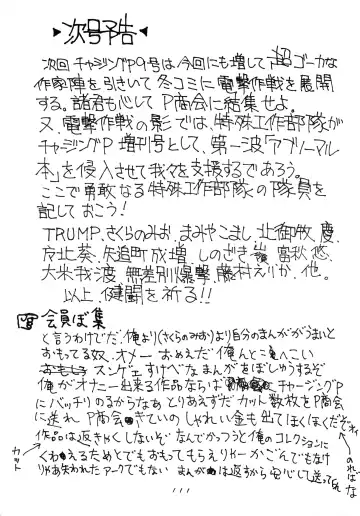 次号予告
次回チャジングP9号は、今回にも増して超ゴーカな
作家陣を引きいて冬コミに電撃作戦を展開
する。諸君も心してP商会に結集せよ。
又、電撃作戦の影では、特殊工作部隊が
チャジングP増刊号として、第一波「アブノーマル
本」を侵入させて我々を支援するであろう。
ここで勇敢なる特殊工作部隊の隊員を
記しておこう!
TRUMP、さくらのみお、まみやこまし、北御牧慶、
友止葵、矢追町成増、しのざき嶺、富秋悠、
大米我波、無差別爆撃、藤村えりか、他。
以上、健闘を祈る!!
会員ぼ集
と言うわけでだ。俺より(さくらのみおり)より自分のまんががうまいと
おもってる奴。オメー おめえだ 俺んとこへこい
スンゲェすけべなまんがをぼしゅうするぞ
俺がオナニー出来る作品ならば チャージングP
にバッチリのるからなあ とりあえずだ カット数枚をP商会
に送れ P商会きていの しゃれい金も出てほくほくだぞ
作品は返きゃくしないぞ なんでかっつうと俺のコレクションに
くわえるためと でもおもってもらえりゃーか ごんでもなけ
りゃあ失われたアークでもない まんがは返すから安心して送ってくれ
カット
のればな